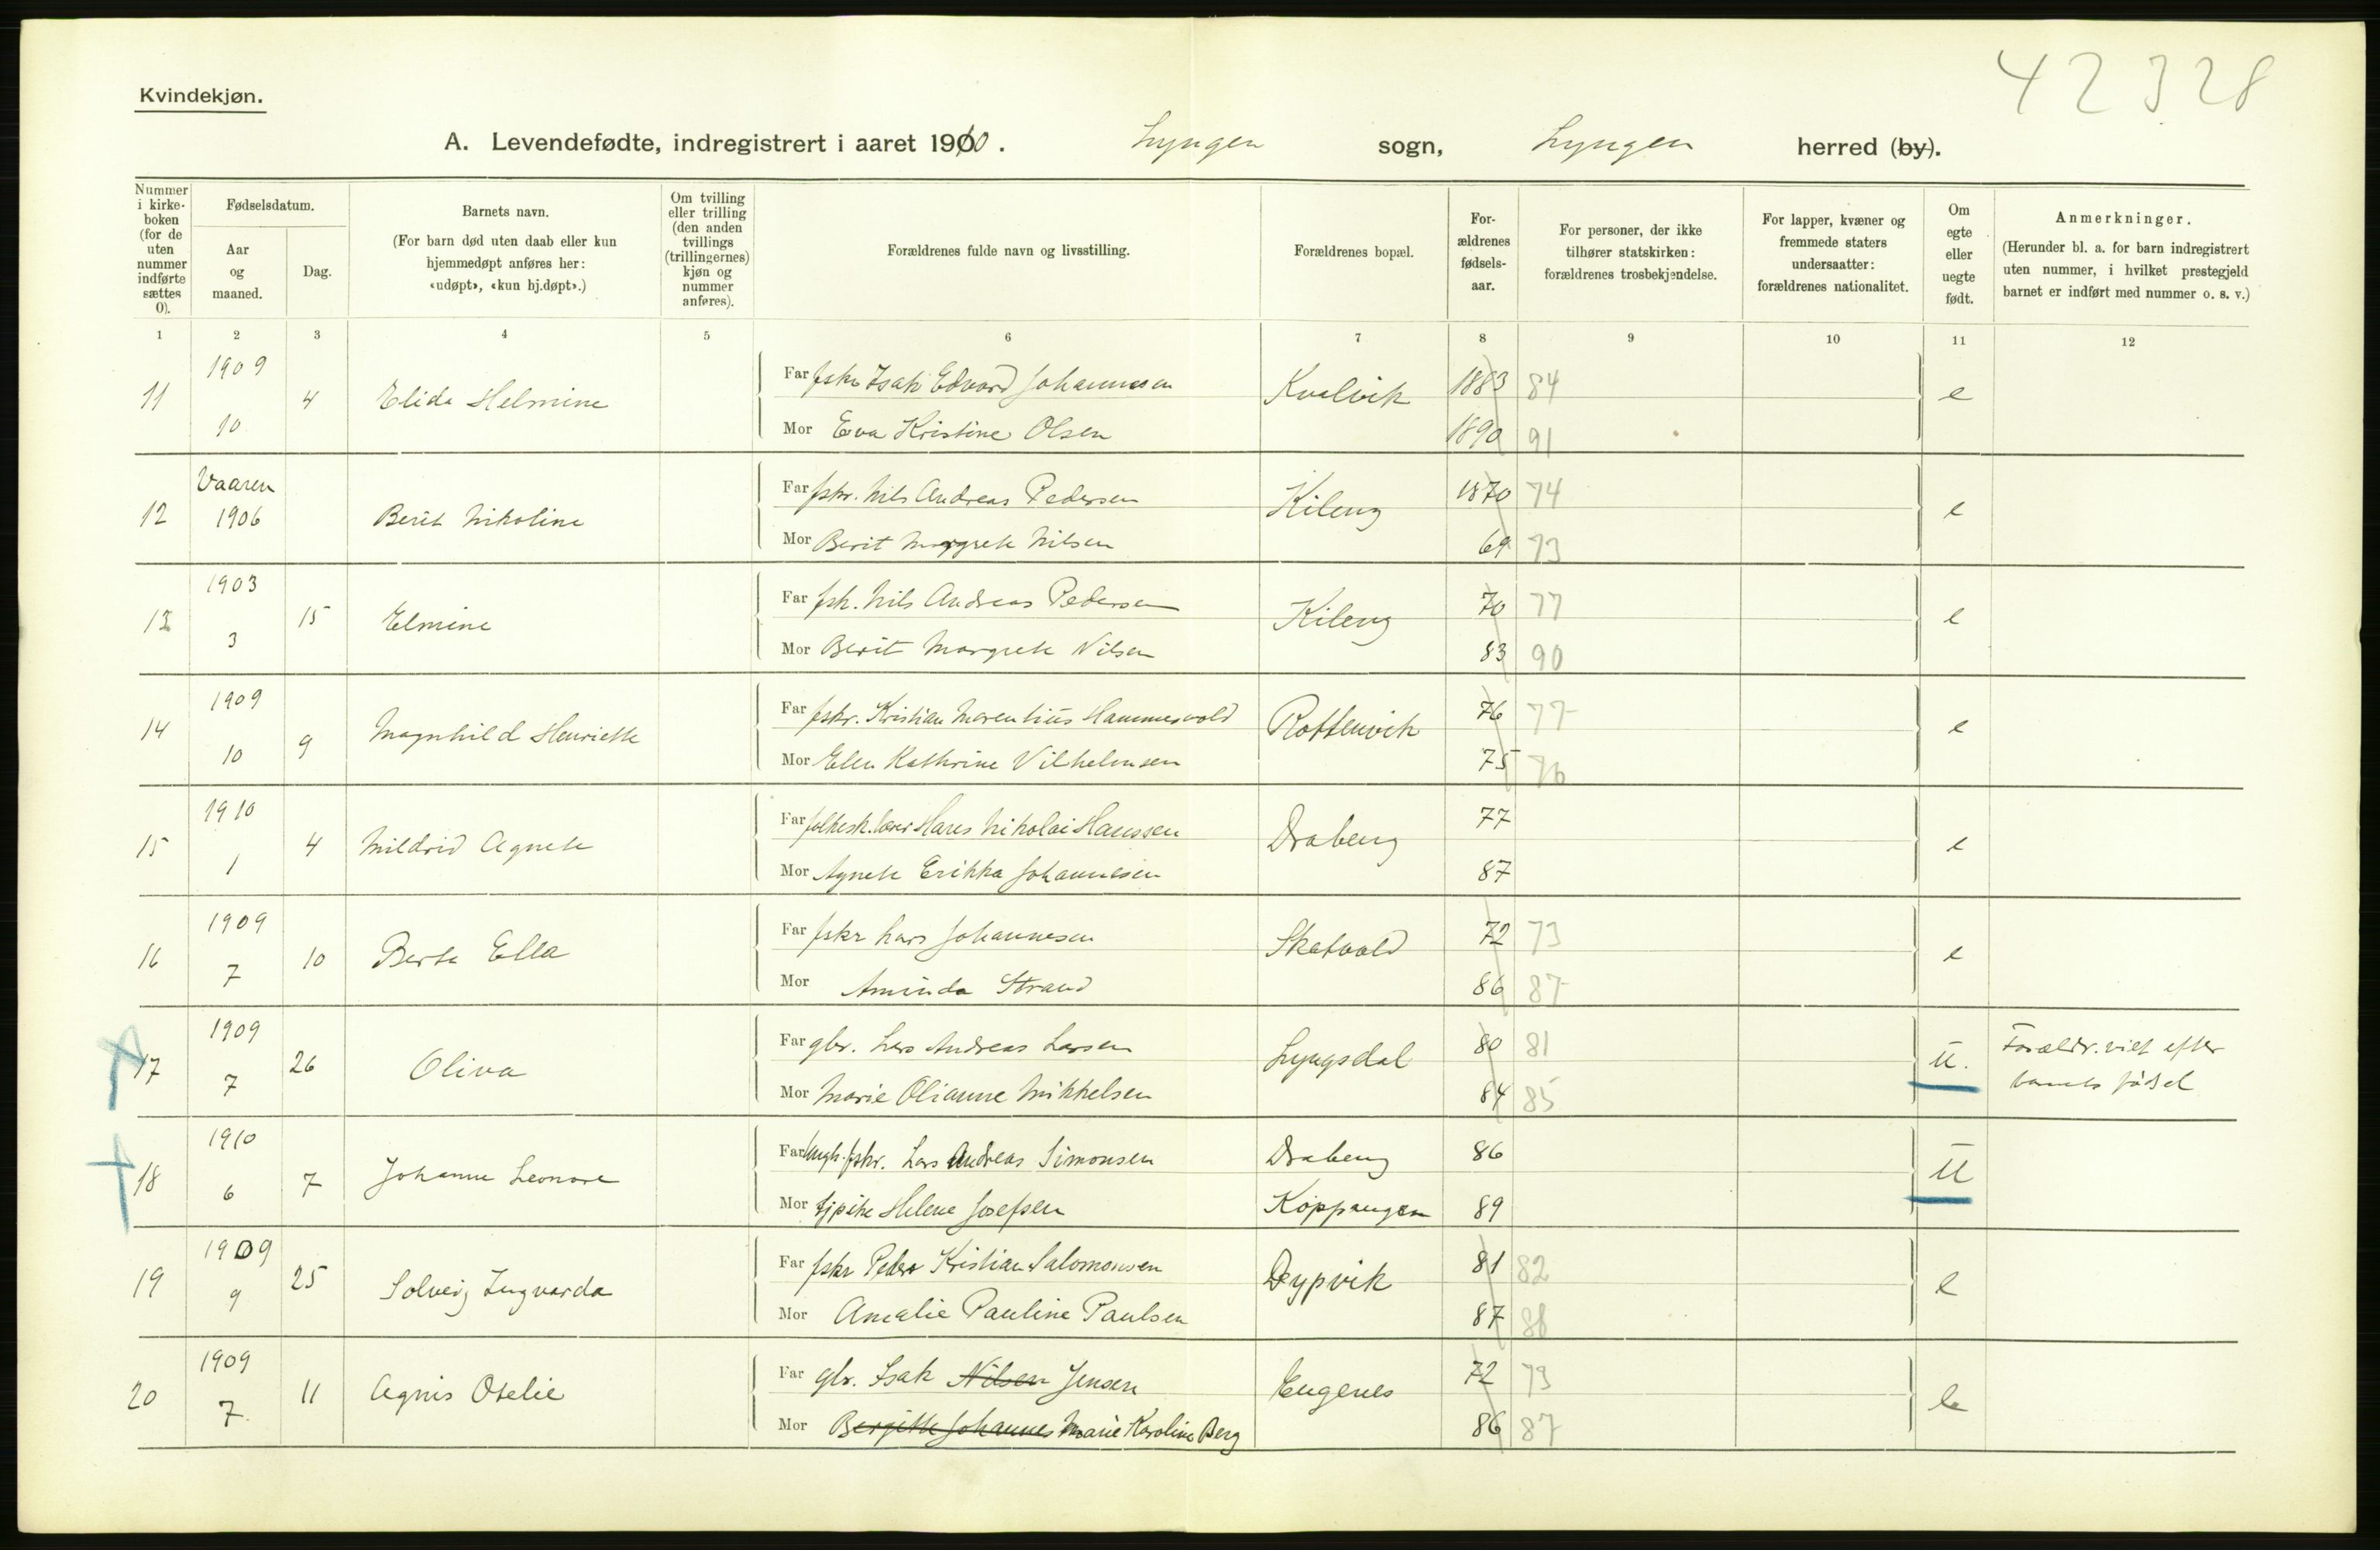 42328
Kvindekjøn.
A. Levendefødte, indregistrert i aaret 1910. Lyngen sogn, Lyngen herred (by).
Nummer i kirkeboken (for de uten nummer indførte sættes 0).
Fødselsdatum.
Aar og maaned.
Dag.
Barnets navn.
(For barn død uten daab eller kun hjemmedøpt anføres her: «udøpt», «kun hj.døpt».)
Om tvilling eller trilling (den anden tvillings (trillingernes) kjøn og nummer anføres).
Forældrenes fulde navn og livsstilling.
Forældrenes bopæl.
Forældrenes fødselsaar.
For personer, der ikke tilhører statskirken: forældrenes trosbekjendelse.
For lapper, kvæner og fremmede staters undersaatter: forældrenes nationalitet.
Om egte eller uegte født.
Anmerkninger.
(Herunder bl. a. for barn indregistrert uten nummer, i hvilket prestegjeld barnet er indført med nummer o. s. v.)
1 2 3 4 5 6 7 8 9 10 11 12
11 1909 10 4 Elida Helmine
Far fskr Isak Edvard Johannesen Kvalvik 1883 84 e
Mor Eva Kristine Olsen 1890 91
12 Vaaren 1906 Berit Nikoline
Far fskr. Nils Andreas Pedersen Kileng 1870 74 e
Mor Berit Margrete Nilsen 69 73
13 1903 3 15 Elmine
Far fsk. Nils Andreas Pedersen Kileng 70 77 e
Mor Berit Margrete Nilsen 83 90
14 1909 10 9 Magnhild Henriette
Far fskr. Kristian Marentius Hammervold Rottenvik 76 77 e
Mor Elen Kathrine Vilhelmsen 75 76
15 1910 1 4 Mildrid Agnete
Far folkesk.lærer Hans Nikolai Hanssen Drabeng 77 e
Mor Agnete Erikka Johannesen 87
16 1909 7 10 Berta Ella
Far fskr Lars Johannesen Skatvold 72 73 e
Mor Aminda Strand 86 87
17 1909 7 26 Oliva
Far gbr. Lars Andreas Larsen Lyngsdal 80 81 u. Forældr. viet efter
Mor Marie Olianne Mikkelsen 84 85 barnets fødsel
18 1910 6 7 Johanne Leonore
Far ungk. fskr. Lars Andreas Simonsen Drabeng 86 u
Mor tjpike Helene Josefsen Koppangen 89
19 1909 9 25 Solveig Ingvarda
Far fskr Peder Kristian Salomonsen Dypvik 81 82 e
Mor Amalie Pauline Paulsen 87 88
20 1909 7. 11 Agnis Otelie
Far gbr. Isak Nilsen Jensen Engenes 72 73 e
Mor Bergitte Johannes Marie Karoline Berg 86 87